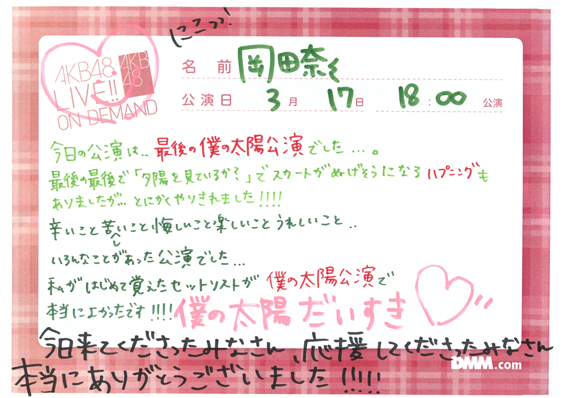 にこっ!
AKB48
LIVE!!
ON DEMAND
AKB
48
名前 岡田奈々
公演日 3月17日 18:00公演
今日の公演は.. 最後の僕の太陽公演でした...。
最後の最後で「夕陽を見ているか?」でスカートがぬげそうになるハプニングも
ありましたが... とにかくやりきれました!!!!
辛いこと苦しいこと悔しいこと楽しいことうれしいこと..
いろんなことがあった公演でした...
私がはじめて覚えたセットリストが僕の太陽公演で
本当によかったです!!!! 僕の太陽だいすき
今日来てくださったみなさん、応援してくださったみなさん
本当にありがとうございました!!!!!
DMM.com